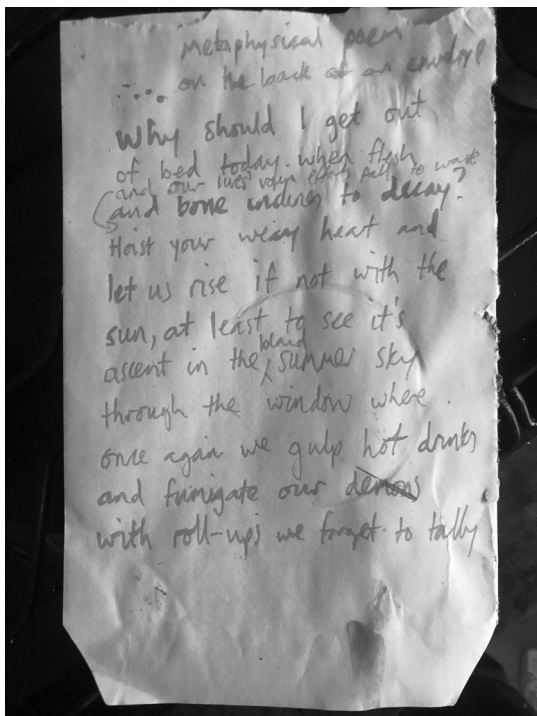 Metaphysical poem
on the back of an envelope
Why should I get out
of bed today when flesh
and our lives' vain efforts fall to waste
and bone inclines to decay?
Hoist your weary heat and
let us rise if not with the
sun, at least to see it's
bland
ascent in the summer sky
through the window where
once again we gulp hot drinks
and fumigate our demons
with roll-ups we forget to tally